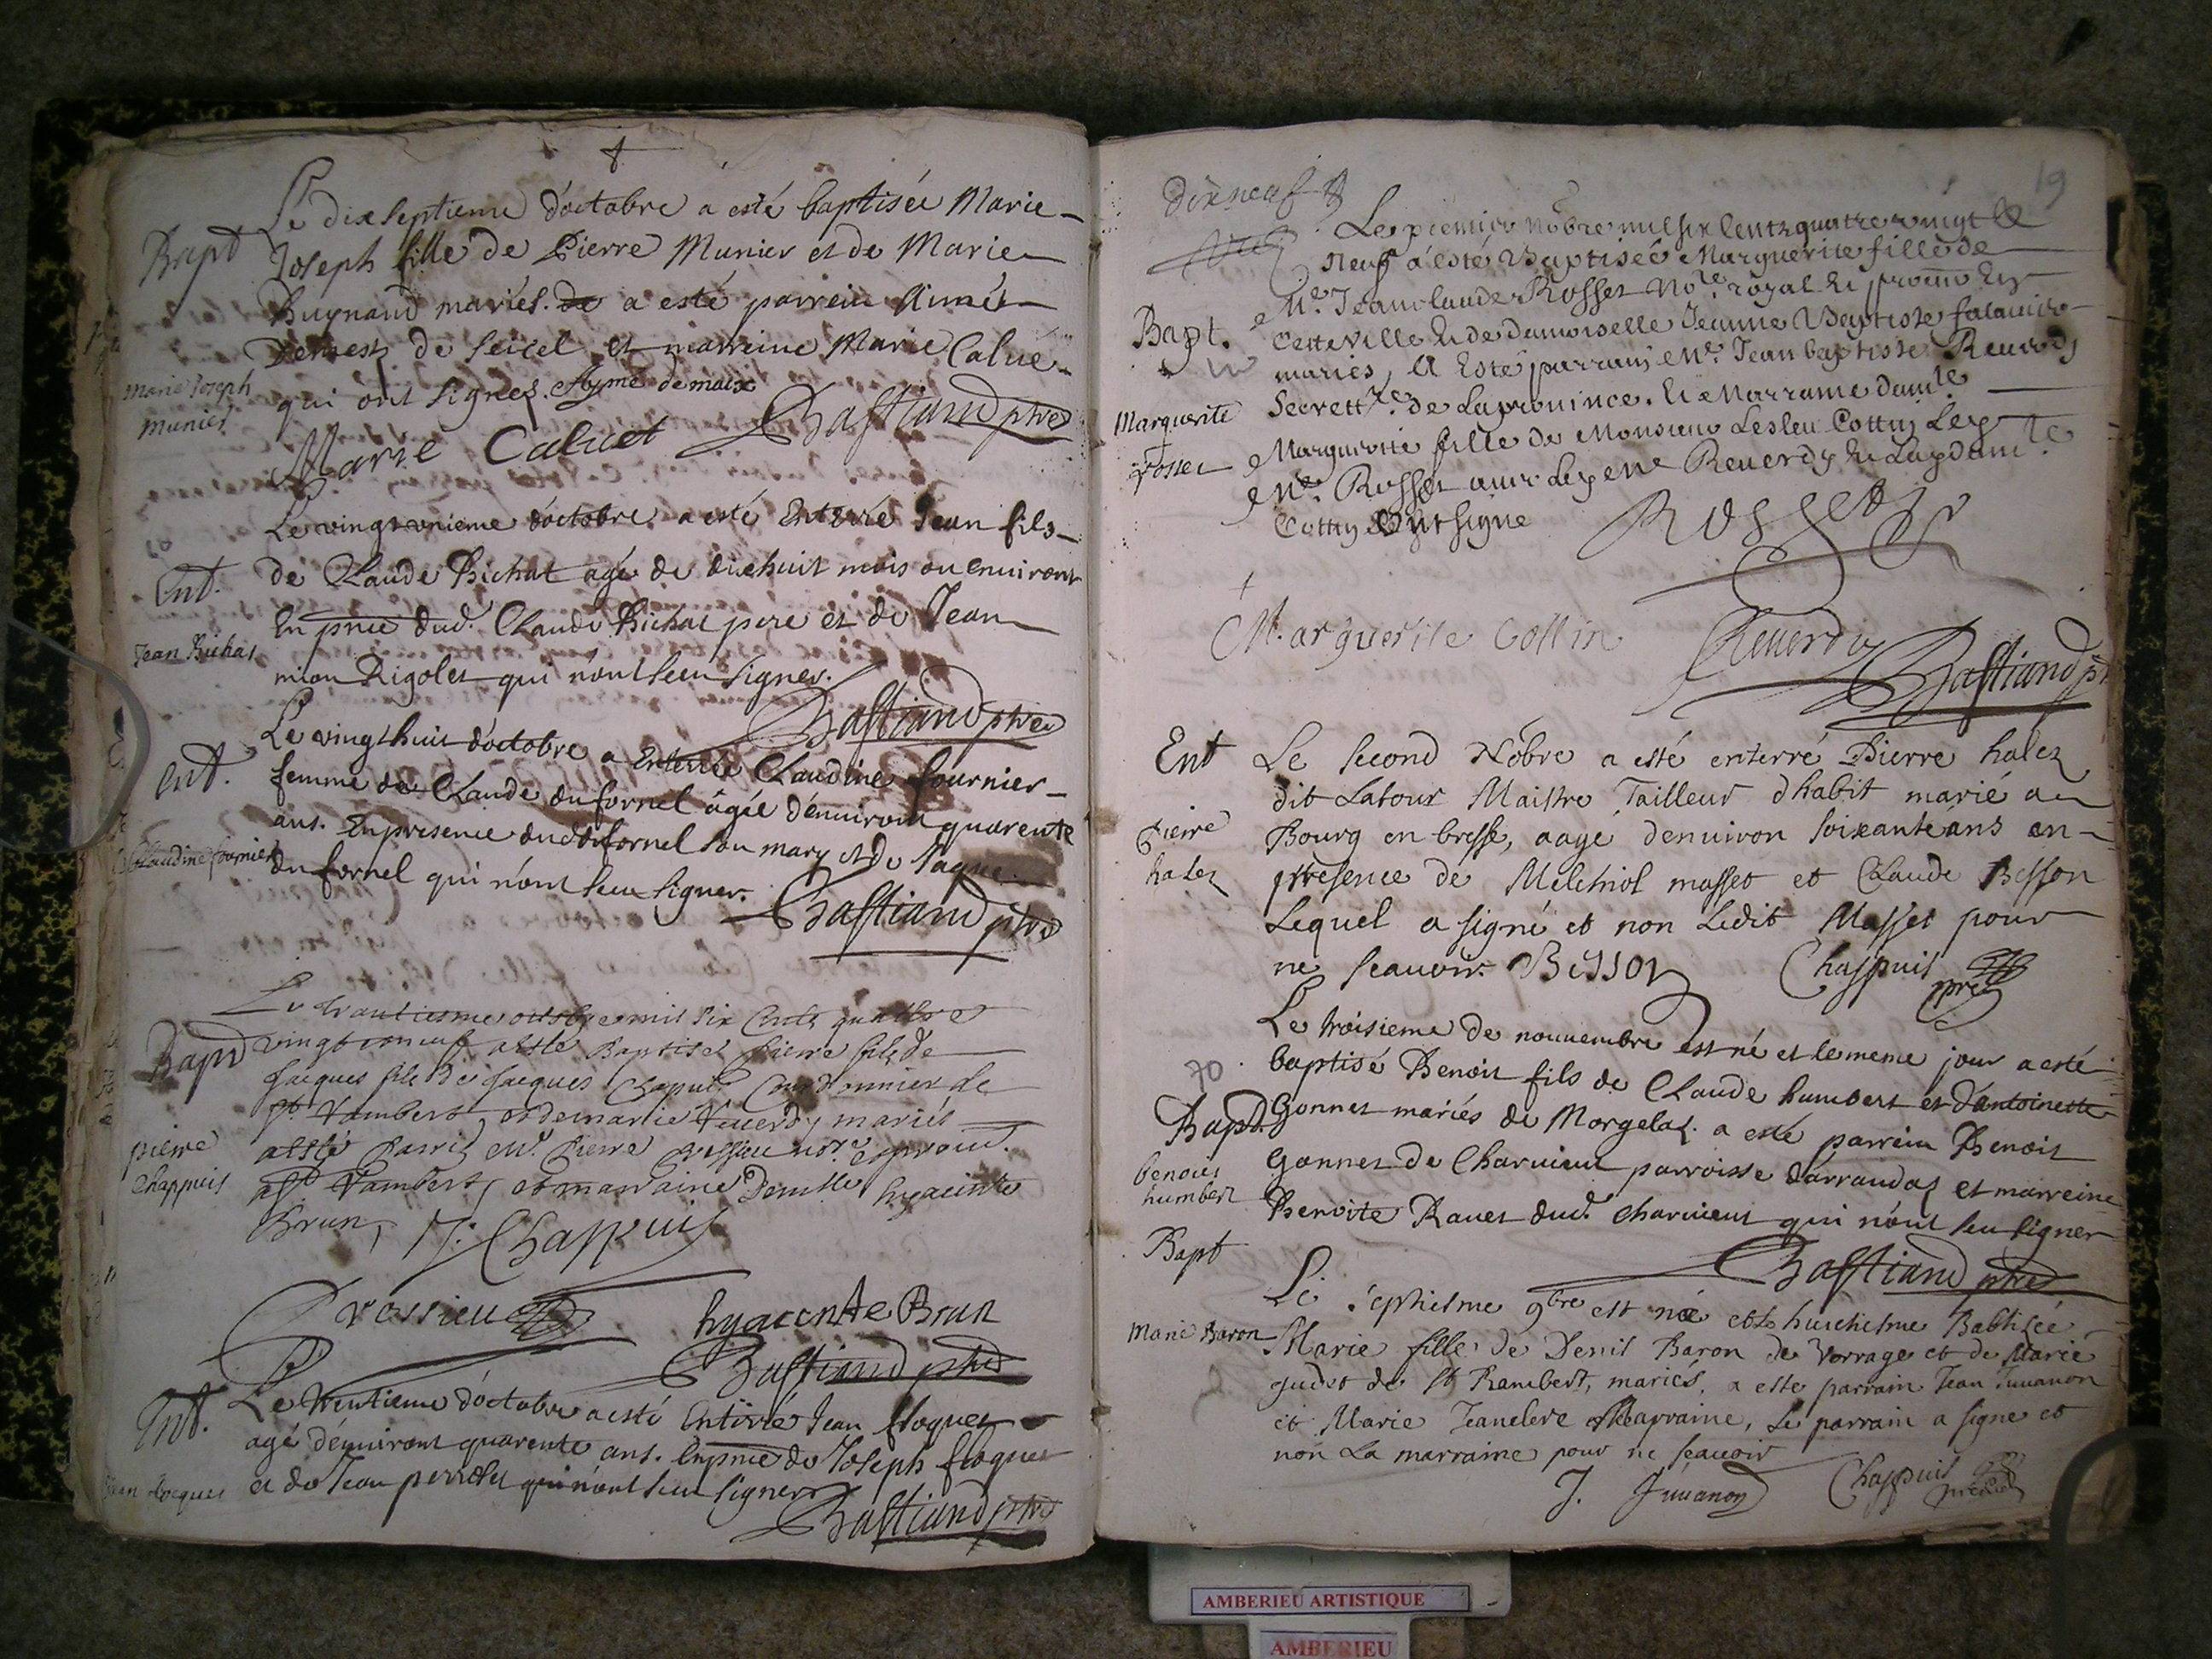 Bapt
Marie Joseph
Munier
Le dixseptieme d'octobre a esté baptisée Marie
Joseph fille de Pierre Munier et de Marie
Buynand mariés. a esté parrein Aimé
de Seicel et marreine Marie Calue
qui ont signés. Aymé demaix
Marie Caluet Bastiand pbre
Ent.
Jean Bichat
Le vingtunieme d'octobre a esté Enterré Jean fils
de Claude Bichat agé de dixhuit mois ou enuiront
En pnce dud. Claude Bichat pere et de Jean
Rigolet qui n'ont sceu signer.
Bastiand pbre
ent.
Claudine fournier
Le vingthuit d'octobre a Enterrée Claudine fournier
femme de Claude dufornel âgée d'enuiront quarente
ans. En presence dud dufornel son mary et de Jaque
du fornel qui n'ont sceu signer.
Bastiand pbre
Bapt
pierre
Chappuis
Le trantiesme octobre mil six Cents quattre
vingt neuf a esté Baptisé pierre fils de
Jacques fils de Jacques Chapuis Cordonnier de
St Rambert et de marie Reuerdy mariés
a esté Parrin Mr. Pierre
St Rambert et marraine Demlle hyacinte
Brun J. Chappuis
hyacente Brun
Bastiand pbre
Ent.
Jean floquet
Le trentieme d'octobre a esté Entérré Jean floquet
agé d'enuiront quarente ans. En pnce de Joseph floquet
et de Jean perrolet qui n'ont sceu signer
Bastiand pbre
19
dixneuf
Bapt.
Marguerite
rosset
Le premier Nobre mil six Cents quatre vingt
neuf a esté Baptisée Marguerite fille de
Me. Jean Claude Rosset Nore. royal
Cette Ville & de damoiselle Jeanne Baptiste
mariés, A Esté parrain Me. Jean baptiste Reuerdy
Secrettre. de La prouince. Marguerite fille de Monsieur Lesleu Cottin
Me. Rosset auec Reuerdy
Cottin ont signe Rosset
Marguerite Cottin Reuerdy
Bastiand pbr
Ent
Pierre
halez
Le second Nobre a esté enterré Pierre halez
dit Latour Maistre Tailleur d'habit marié a
Bourg en bresse, aagé denuiron soixante ans en
presence de Melchiol masset et Claude Besson
Lequel a signé et non Ledit Masset pour
ne scauoir. Besson Chappuis pre
70
Bapt.
benoist
humbert
Le troisieme de nouuembre est né et le meme jour a esté
baptisé Benoit fils de Claude humbert et d'antoinette
Gonnet mariés de Morgelas. a esté parrein Benoit
Gonnet de Charuieux parroisse d'arrandas et marreine
Benoite Rauet dud. charuieux qui n'ont sceu signer
Bastiand pbre
Bapt
Marie Baron
Le Septiesme 9bre est née et le huictiesme Babtisée
Marie fille de Denis Baron de Vorrage et de Marie
gudet de St Rambert, mariés. a este parrain Jean Juuanon
et Marie Jeanclere Marraine, Le parrain a signe et
non La marraine pour ne scauoir
J. Juuanon Chappuis
AMBERIEU ARTISTIQUE
AMBERIEU